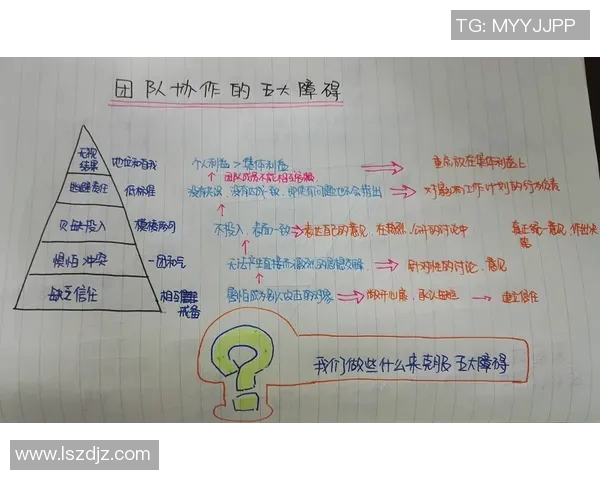 TG: MYYJJPP
团队协作的五大障碍
无视结果 地位和自我 个人利益 > 集体利益 重点放在集体利益上
团队成员不能相互
逃避责任 低标准 没有达成一致, 对影响工作计划的行为负责
欠缺投入 模棱两可 不投入、表面一致 表达自己的意见、在 公开的讨论中 真正统一意见,作出决
惧怕冲突 一团和气 无法产生直接而激烈的思想交锋 针对性的讨论、意见
缺乏信任 相互 戒备 害怕成为别人攻击的对象 敞开心扉、承认 建立信任
我们做些什么来克服五大障碍
?
www.lszdjz.com